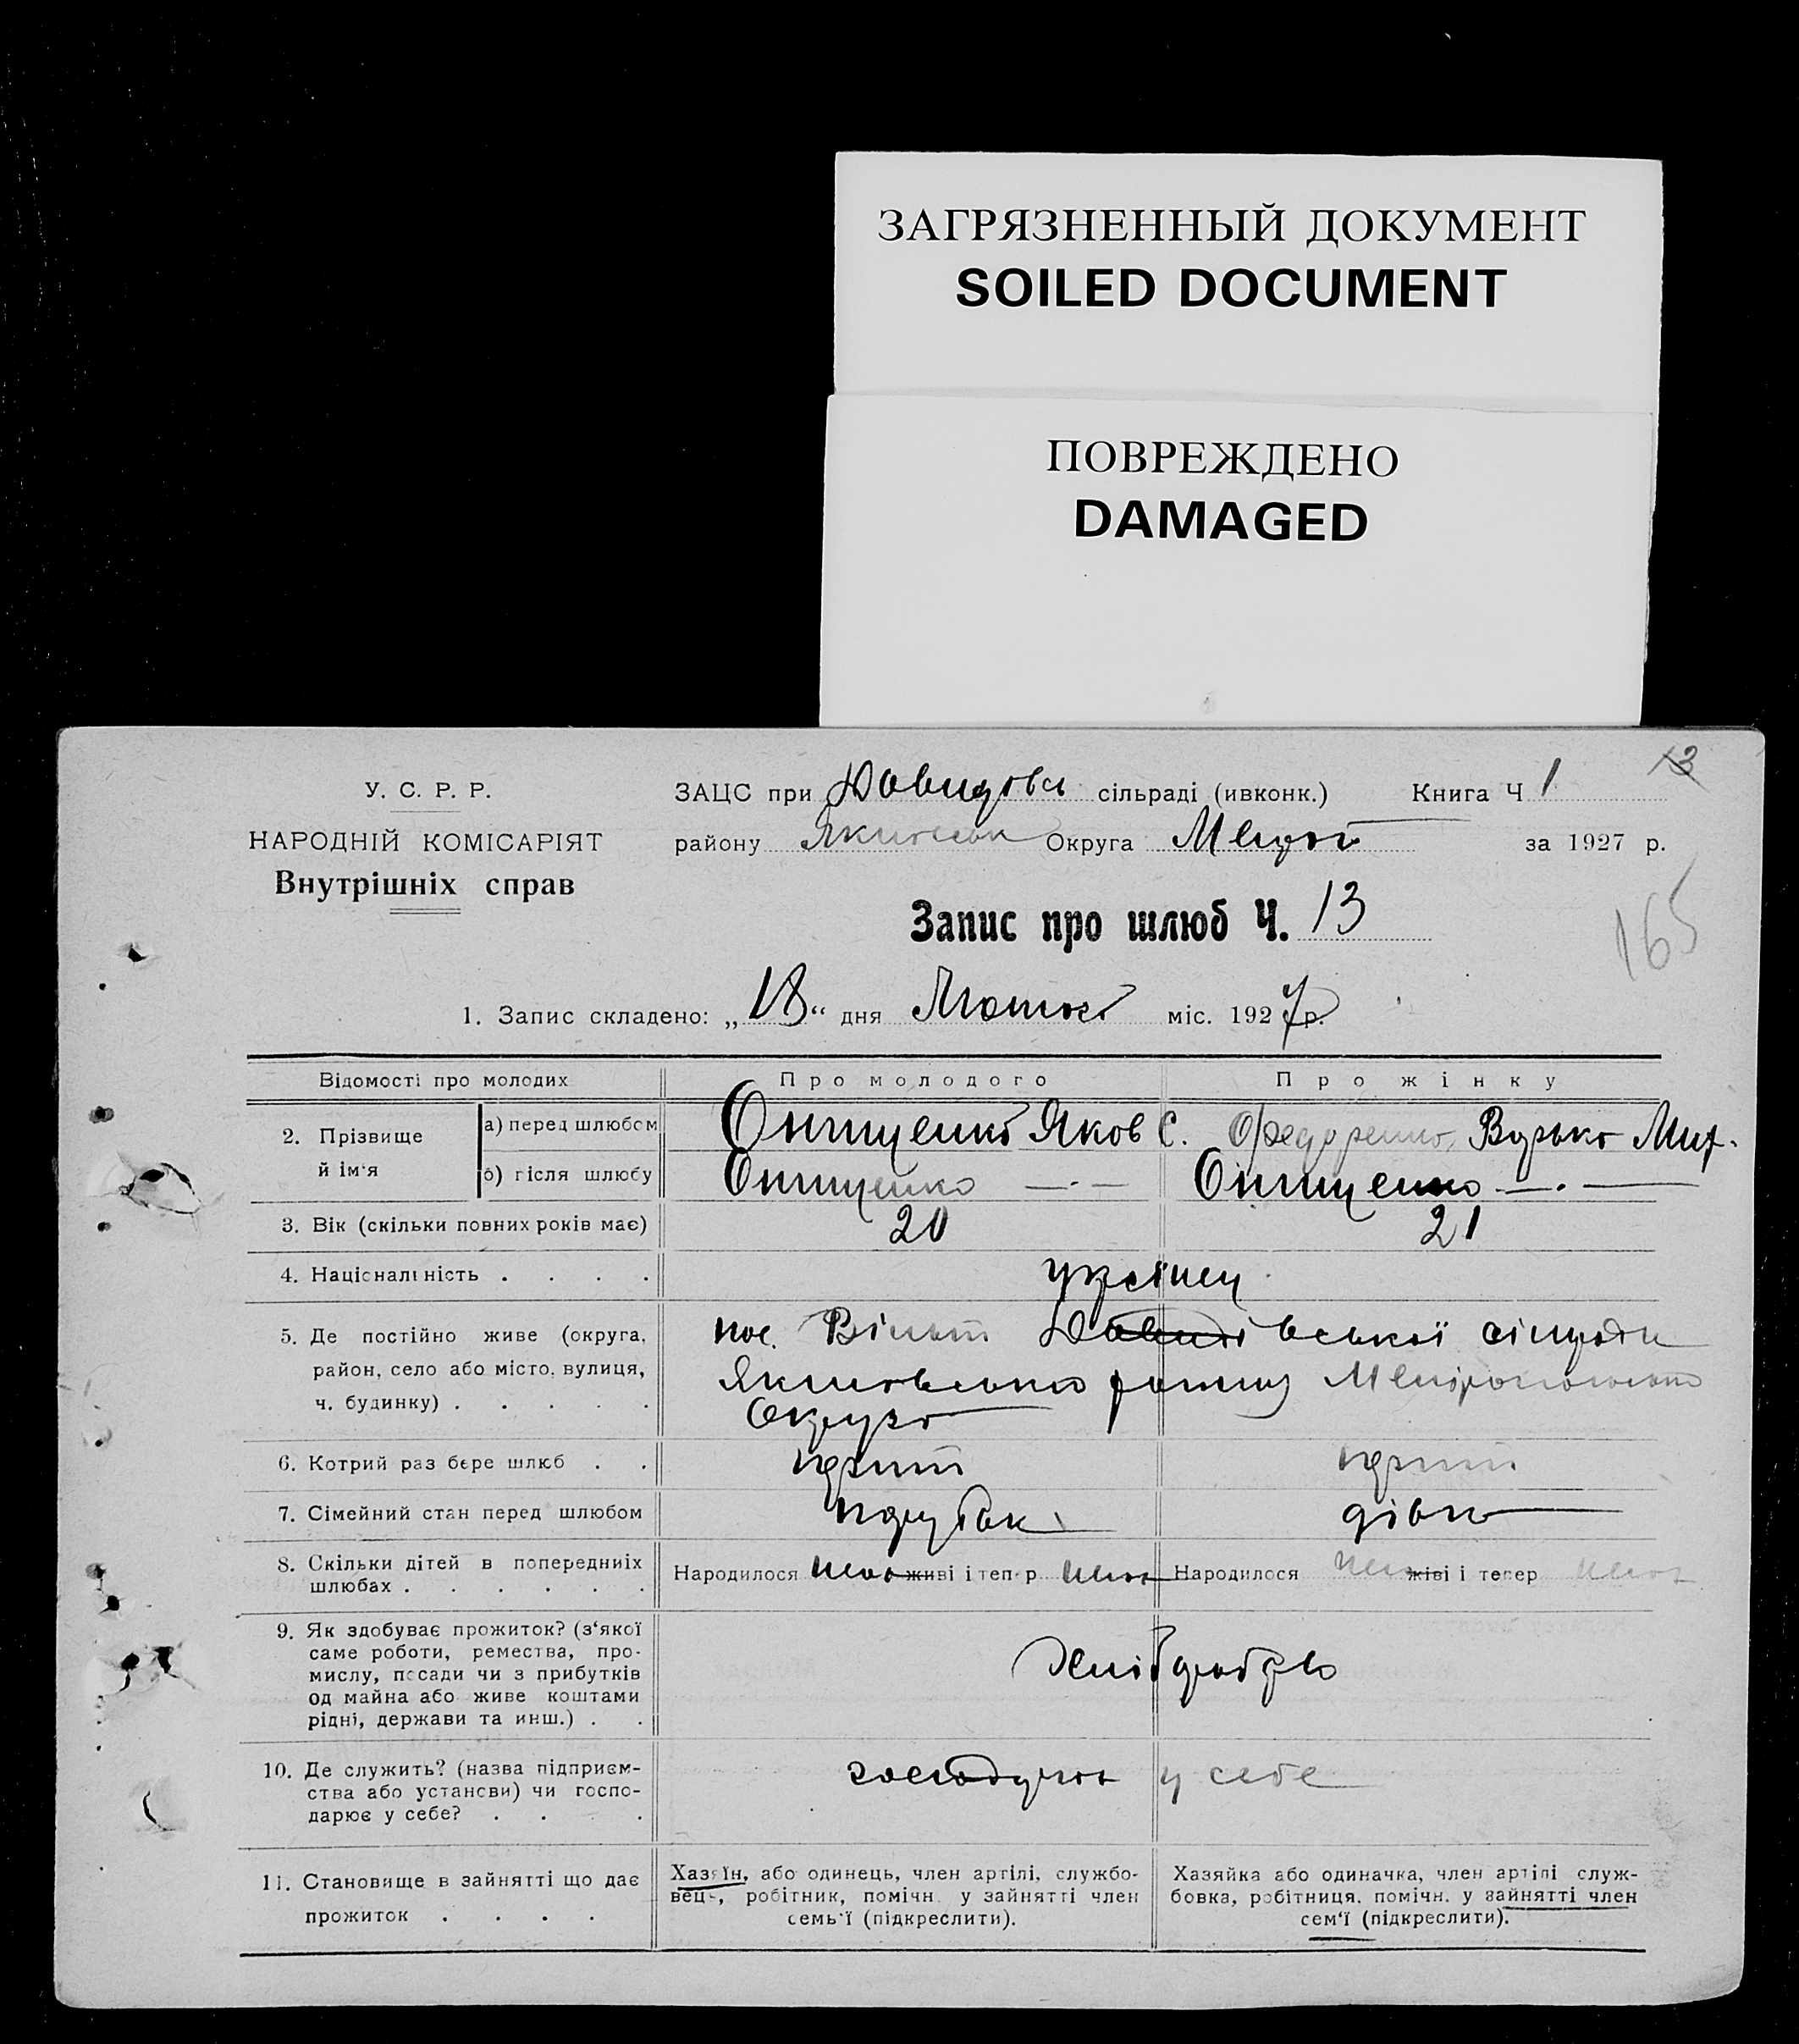 ЗАГРЯЗНЕННЫЙ ДОКУМЕНТ
SOILED DOCUMENT
ПОВРЕЖДЕНО
DAMAGED
13
У. С. Р. Р.
НАРОДНІЙ КОМІСАРІЯТ
Внутрішніх справ
ЗАЦС при Давидовс сільраді (ивконк.) Книга Ч 1
району Округа за 1927 р.
Запис про шлюб Ч. 13
165
1. Запис складено: „18“ дня Лютого міс. 1927 р.
Відомості про молодих Про молодого Про жінку
2. Прізвище й ім'я
а) перед шлюбом Онищенко Яков С. Федоренко Мих.
б) після шлюбу Онищенко —·— Онищенко —·—
3. Вік (скільки повних років має) 20 21
4. Національність . . . .
5. Де постійно живе (округа, пос.
район, село або місто, вулиця, Якимовського району
ч. будинку) . . . . . Округи
6. Котрий раз бере шлюб . . перший перший
7. Сімейний стан перед шлюбом парубок дівка
8. Скільки дітей в попередніх Народилося нема живі і тепер нема Народилося нема живі і тепер нема
шлюбах . . . . . .
9. Як здобуває прожиток? (з'якої
саме роботи, ремества, про-
мислу, посади чи з прибутків хлібороб
од майна або живе коштами
рідні, держави та инш.) . .
10. Де служить? (назва підприєм-
ства або установи) чи госпо- у себе
дарює у себе? . . .
11. Становище в зайнятті що дає
прожиток . . . .
Хазяїн, або одинець, член артілі, службо-
вець, робітник, помічн. у зайнятті член
семь'ї (підкреслити).
Хазяйка або одиначка, член артілі служ-
бовка, робітниця, помічн. у зайнятті член
сем'ї (підкреслити).